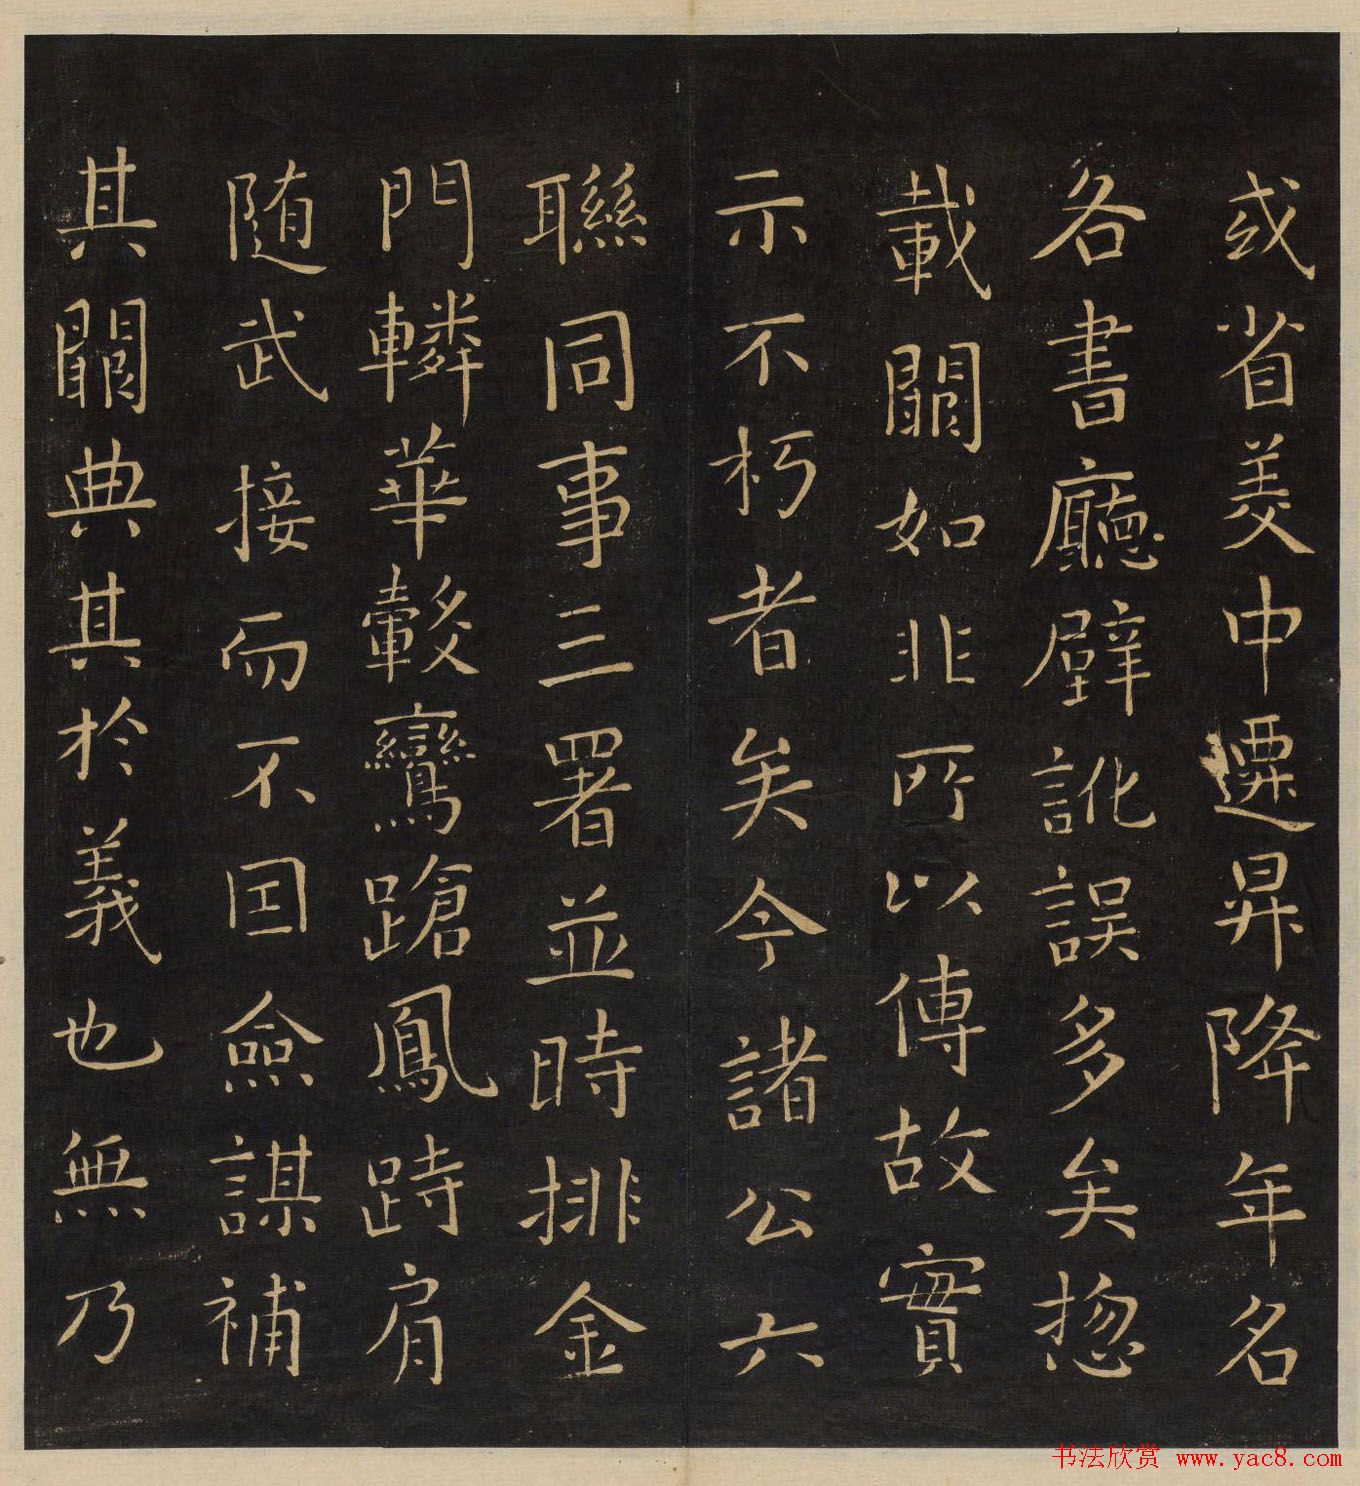 或省美中遷昇降年名
各書廳壁訛誤多矣揔
載闕如非所以傳故實
示不朽者矣今諸公六
聯同事三署並時排金
門轔華轂鸞蹌鳳跱肩
随武接而不囯僉謀補
其闕典其於義也無乃
书法欣赏 www.yac8.com